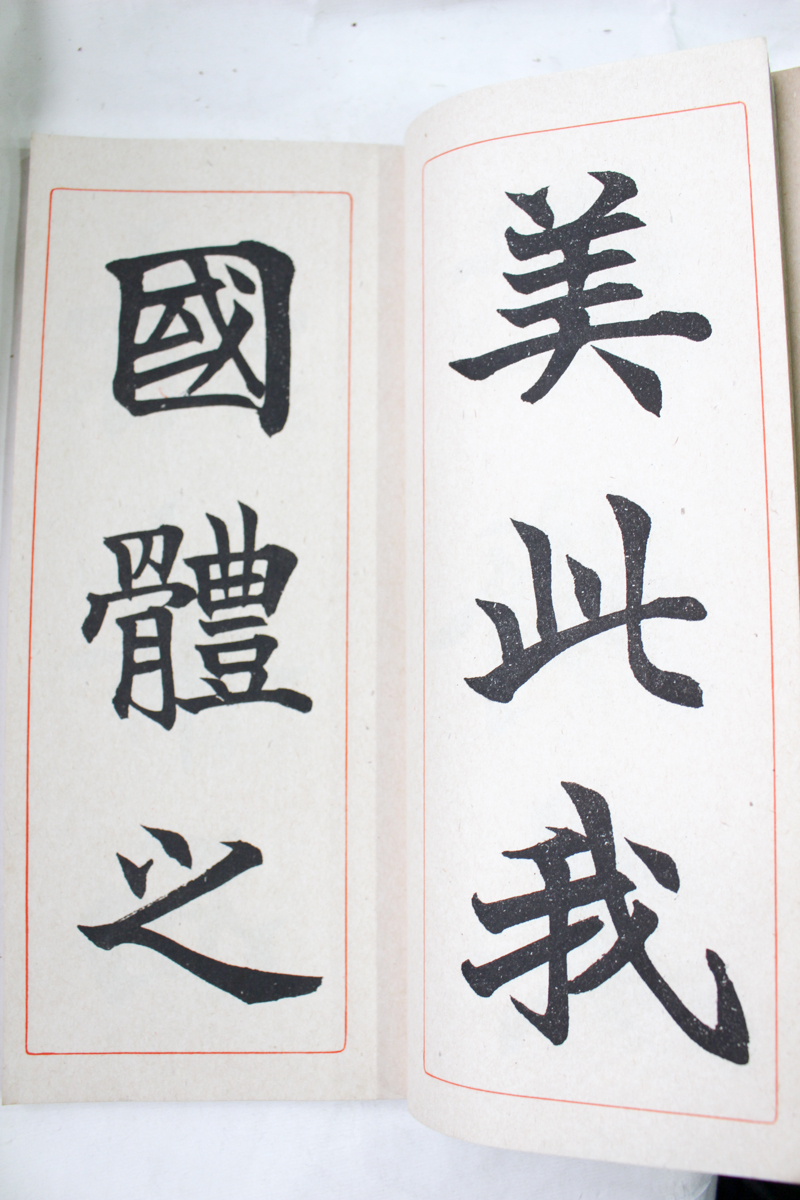 美此我
國體之